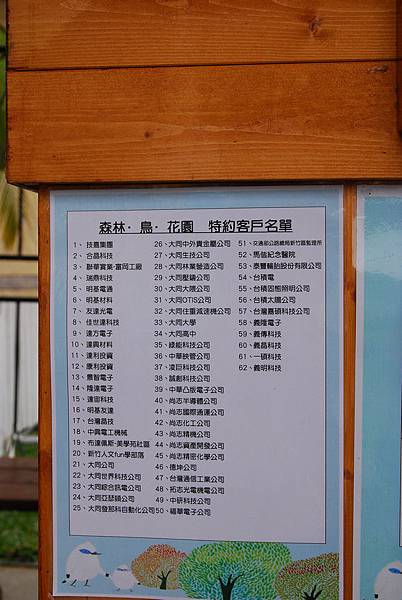 森林．鳥．花園 特約客戶名單
1、技嘉集團
2、合晶科技
3、聯華實業‧富岡工廠
4、瑞鼎科技
5、明基電通
6、明基材料
7、友達光電
8、佳世達科技
9、達方電子
10、達興材料
11、達利投資
12、康利投資
13、景智電子
14、隆達電子
15、達運科技
16、明基友達
17、台灣晶技
18、中興電工機械
19、布達佩斯‧美學苑社區
20、新竹人文fun學部落
21、大同公司
22、大同世界科技公司
23、大同綜合訊電公司
24、大同亞瑟頓公司
25、大同發那科自動化公司
26、大同中外貴金屬公司
27、大同生技公司
28、大同林業營造公司
29、大同壓鑄公司
30、大同大隈公司
31、大同OTIS公司
32、大同住重減速機公司
33、大同大學
34、大同高中
35、綠能科技公司
36、中華映管公司
37、凌巨科技公司
38、誠創科技公司
39、中華凸版電子公司
40、尚志半導體公司
41、尚志國際通運公司
42、尚志化工公司
43、尚志精機公司
44、尚志資產開發公司
45、尚志精密化學公司
46、德坤公司
47、台灣通信工業公司
48、拓志光電機電公司
49、中研科技公司
50、福華電子公司
51、交通部公路總局新竹區監理所
52、馬偕紀念醫院
53、泰豐輪胎股份有限公司
54、台積電
55、台積固態照明公司
56、台積太陽公司
57、台灣嘉碩科技公司
58、義隆電子
59、義傳科技
60、義晶科技
61、一碩科技
62、義明科技